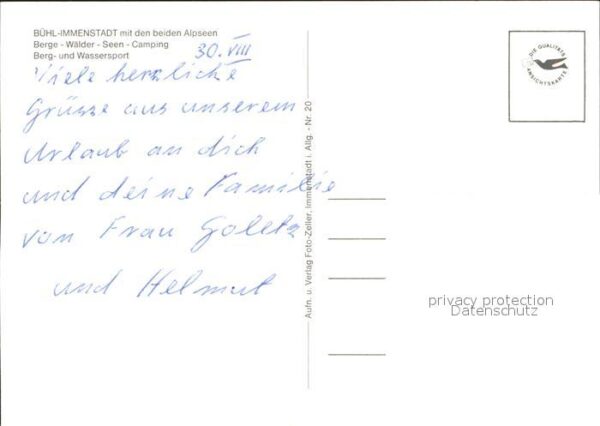 BÜHL-IMMENSTADT mit den beiden Alpseen
Berge - Wälder - Seen - Camping
Berg- und Wassersport
30. VIII
Viele herzliche
Grüsse aus unserem
Urlaub an dich
und deine Familie
von Frau
und Helmut
Aufn. u. Verlag Foto-Zeller, Immenstadt i. Allg. - Nr. 20
DIE QUALITÄTS
ANSICHTSKARTE
privacy protection
Datenschutz